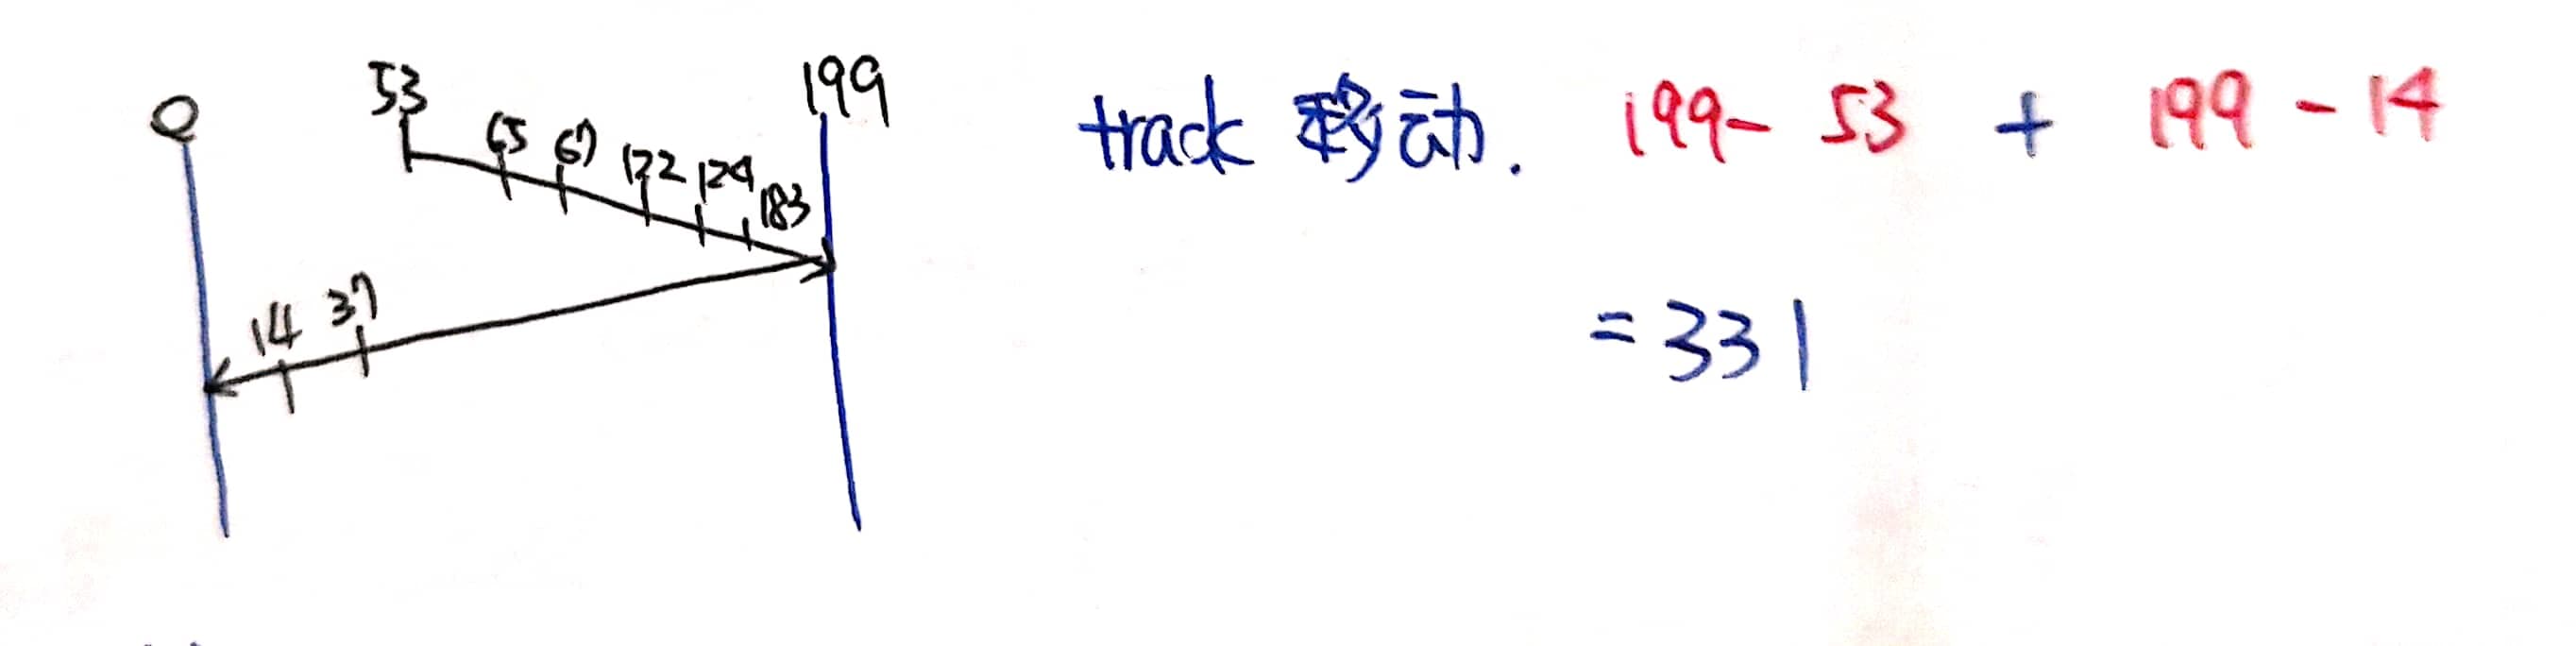 0 53 65 67 122 124 183 199
14 37
track 移动. 199 - 53 + 199 - 14
= 331